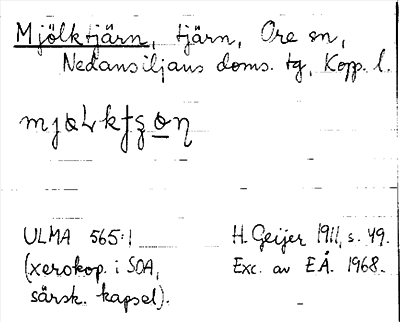 Mjölktjärn, tjärn, Ore sn,
Nedansiljans doms. tg, Kopp. l.
ULMA 565:1
(xerokop. i SOA,
särsk. kapsel).
H. Geijer 1911, s. 49.
Exc. av EÅ. 1968.